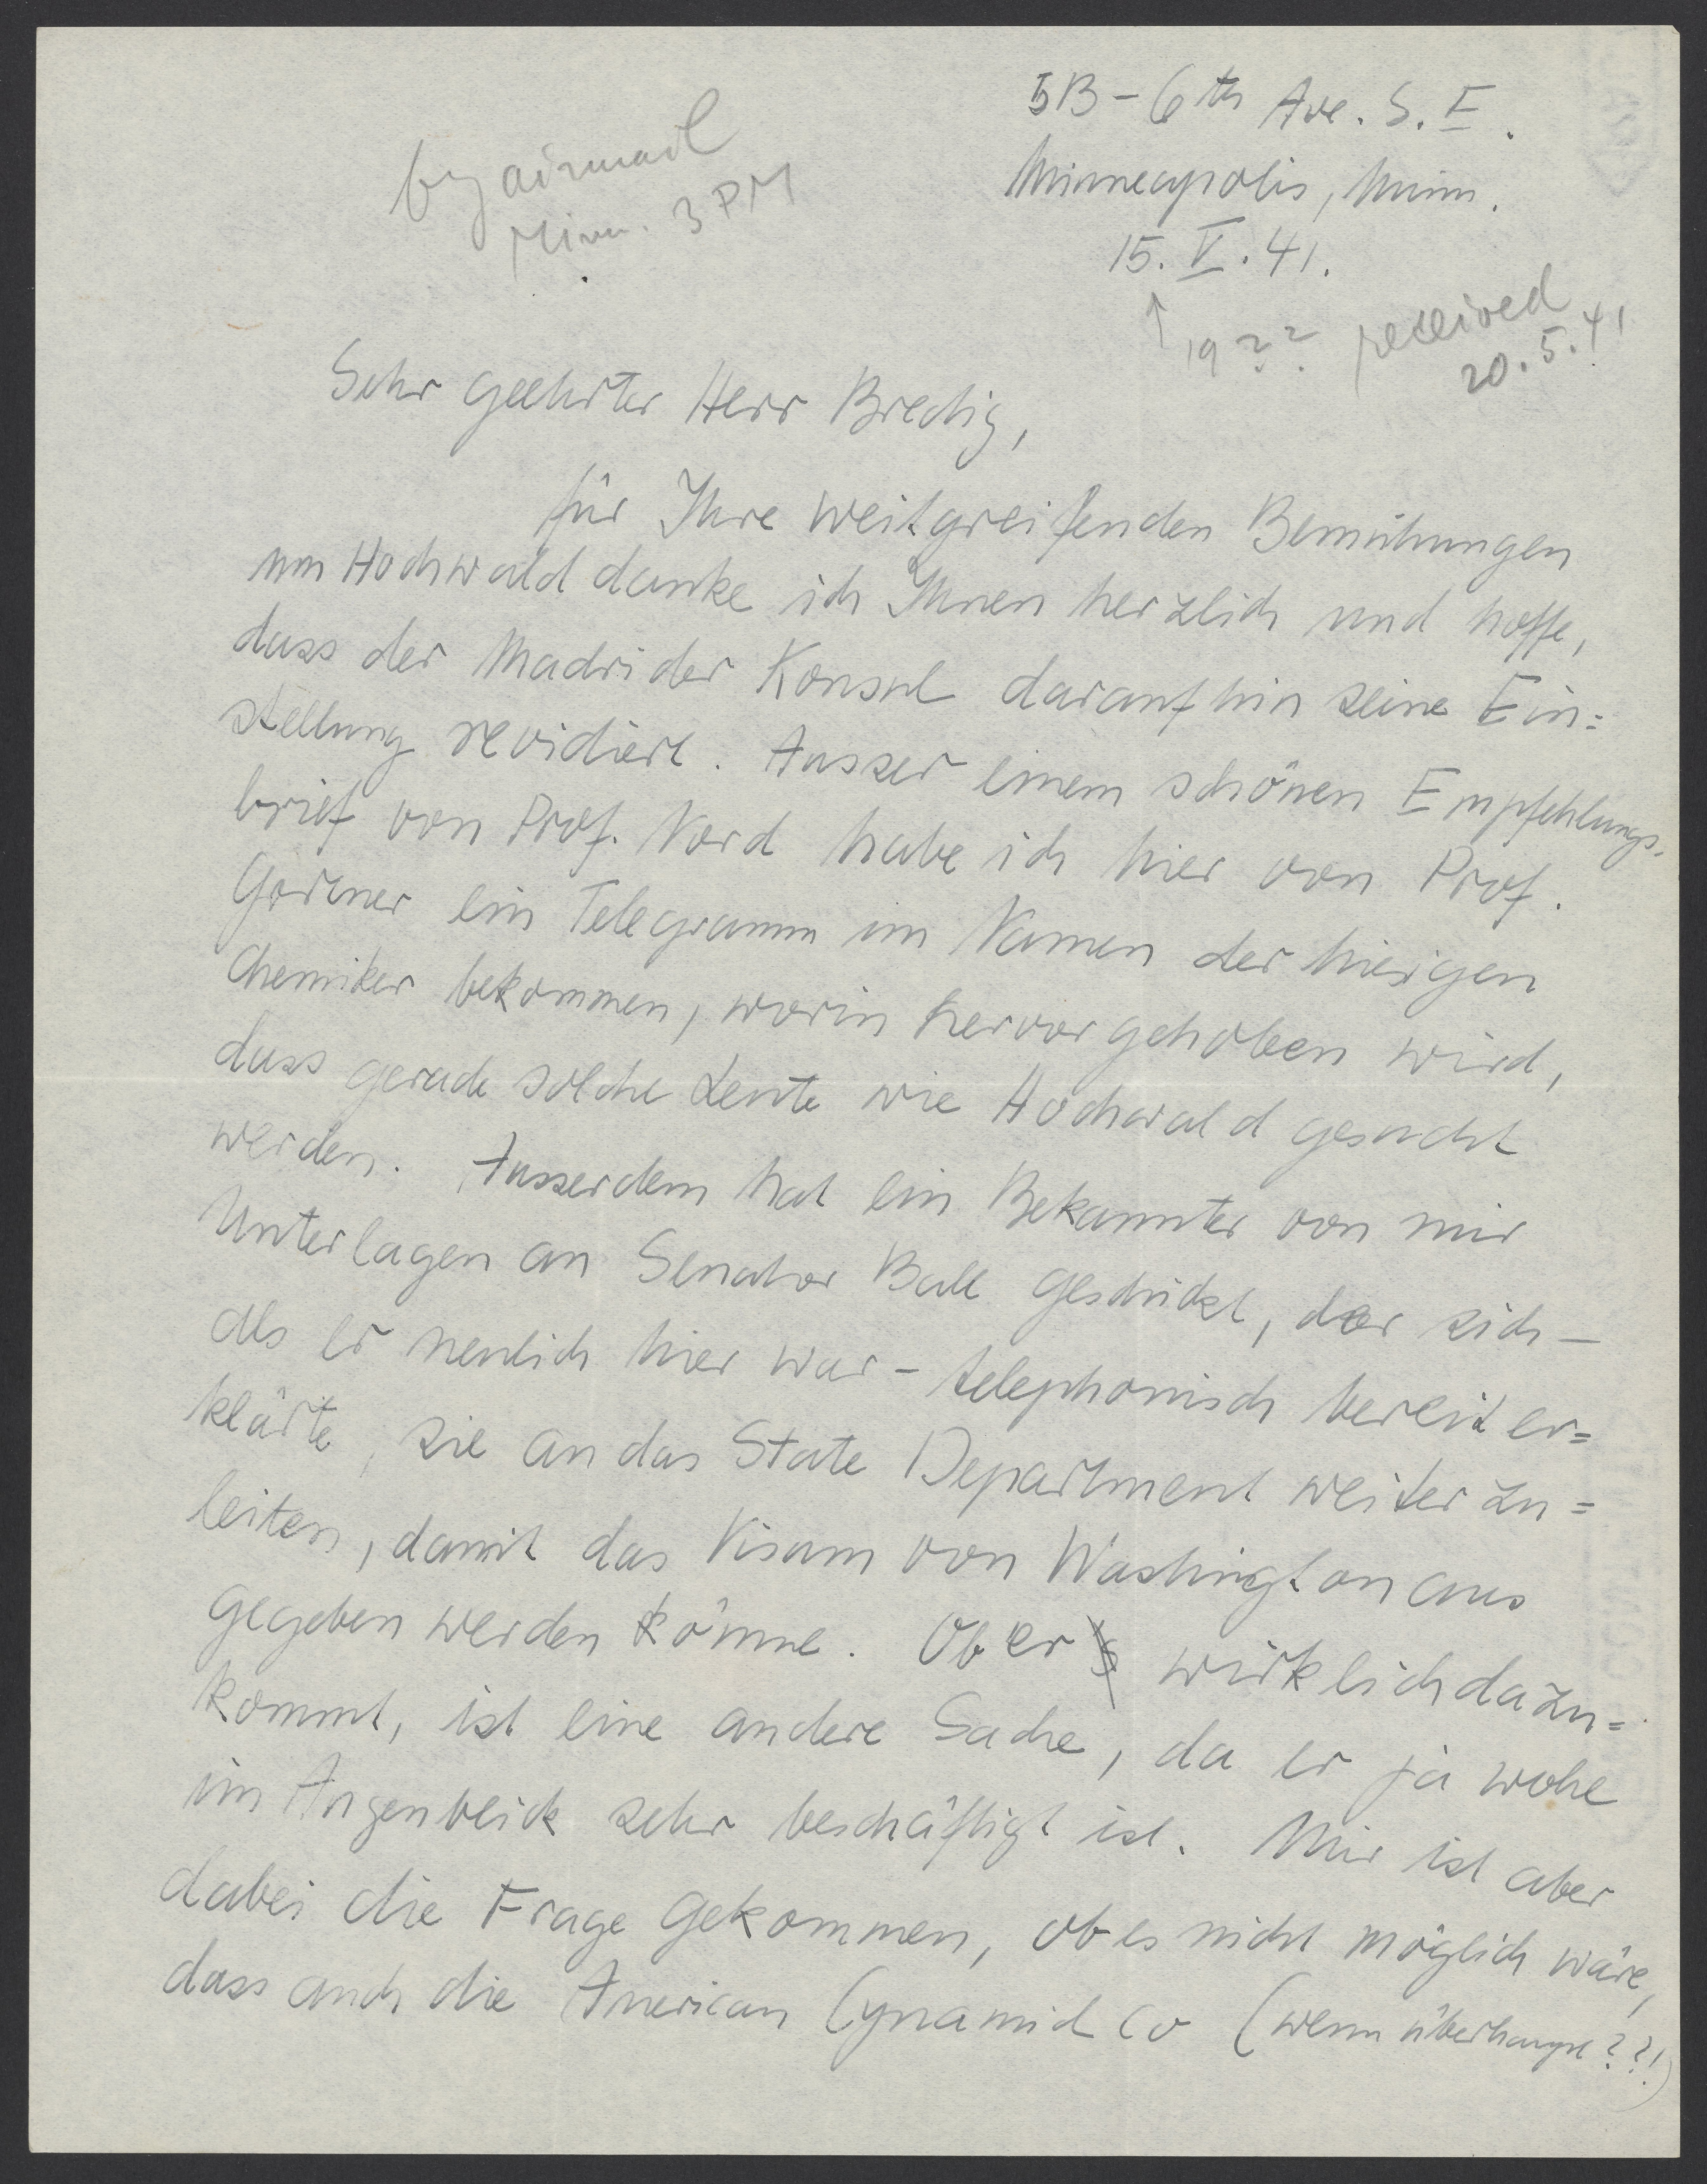 by airmail
Minn. 3 PM
5B - 6th Ave. S. E.
Minneapolis, Minn.
15. V. 41.
↑ 19 ?? received
20. 5. 41
Sehr geehrter Herr Bredig,
für Ihre weitgreifenden Bemühungen
um Hochwald danke ich Ihnen herzlich und hoffe,
dass der Madrider Konsul daraufhin seine Ein=
stellung revidiert. Ausser einem schönen Empfehlungs-
brief von Prof. Nord habe ich hier von Prof.
Gortner ein Telegramm im Namen der hiesigen
Chemiker bekommen, worin hervorgehoben wird,
dass gerade solche Leute wie Hochwald gesucht
werden. Ausserdem hat ein Bekannter von mir
Unterlagen an Senator Ball geschickt, der sich –
als er neulich hier war – telephonisch bereit er=
klärte, sie an das State Department weiterzu=
leiten, damit das Visum von Washington aus
gegeben werden könne. Ob er wirklich dazu=
kommt, ist eine andere Sache, da er ja wohl
im Augenblick sehr beschäftigt ist. Mir ist aber
dabei die Frage gekommen, ob es nicht möglich wäre,
dass auch die American Cynamid Co (wenn überhaupt??!)